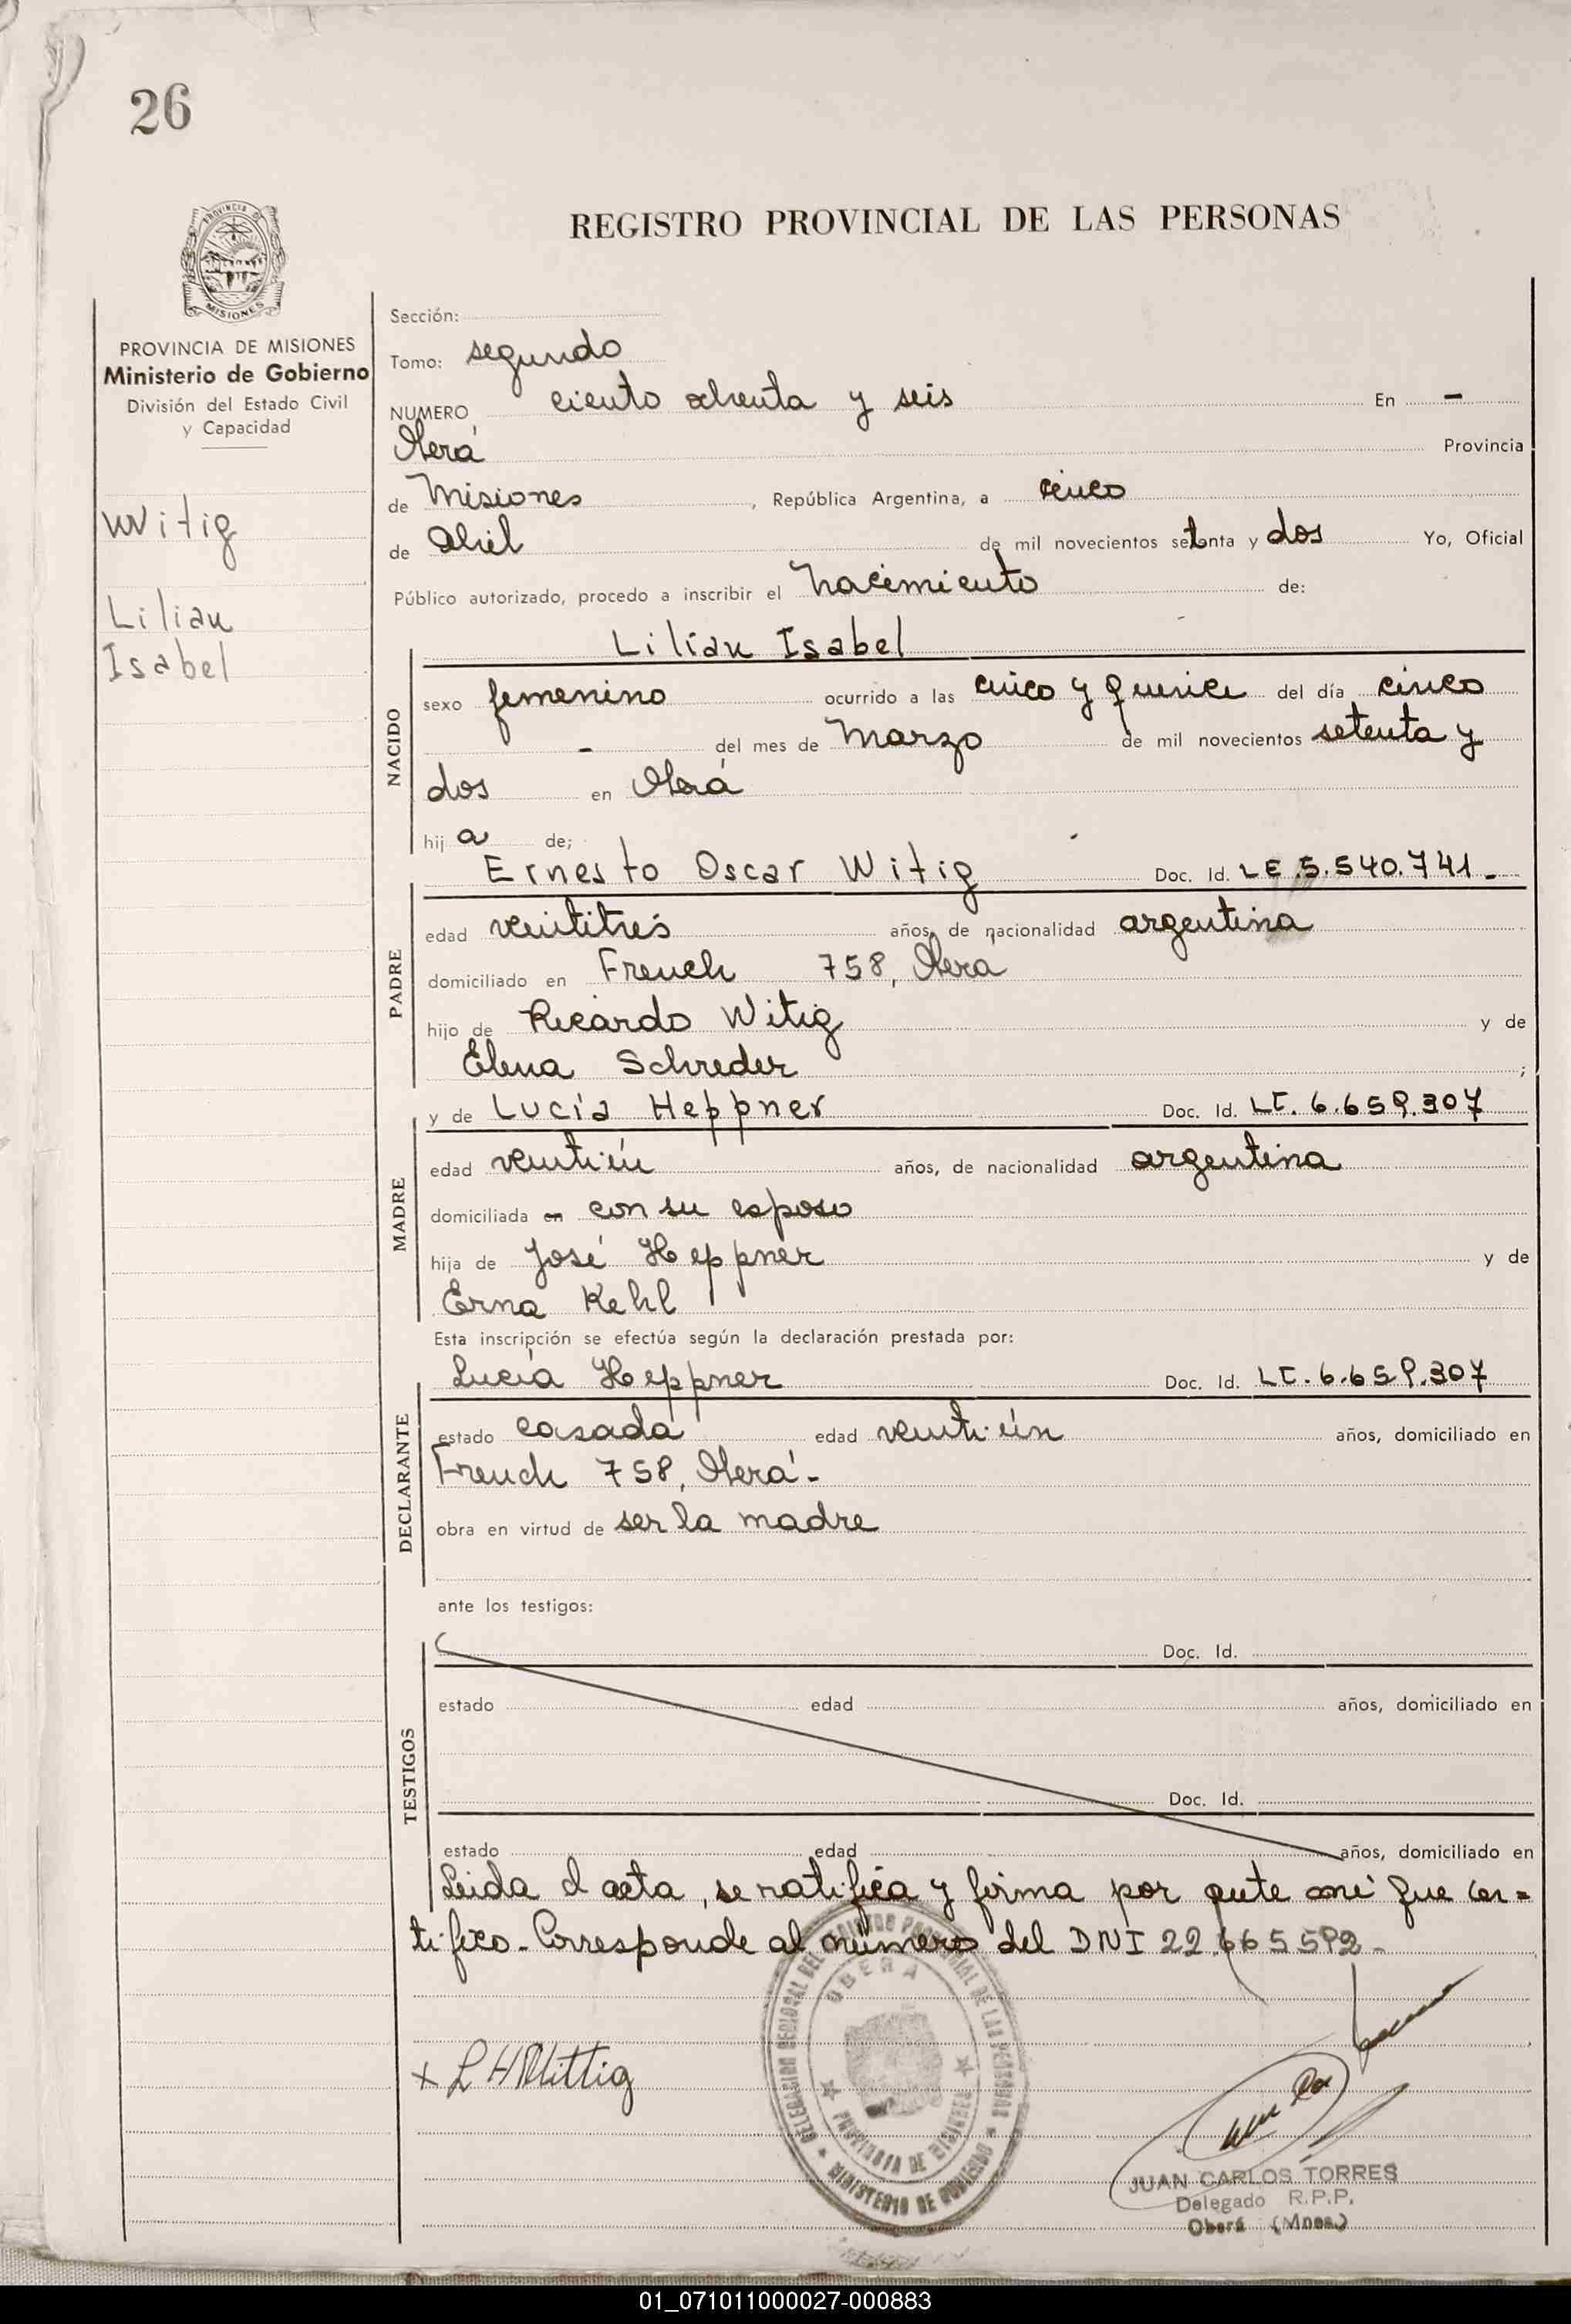 26
REGISTRO PROVINCIAL DE LAS PERSONAS
MISIONES
PROVINCIA DE MISIONES
Ministerio de Gobierno
División del Estado Civil
y Capacidad
Witig
Lilian
Isabel
Sección:
Tomo: segundo
NUMERO ciento ochenta y seis En -
Oberá Provincia
de Misiones, República Argentina, a cinco
de Abril de mil novecientos setenta y dos Yo, Oficial
Público autorizado, procedo a inscribir el nacimiento de:
Lilian Isabel
NACIDO
sexo femenino ocurrido a las cinco y quince del día cinco
- del mes de Marzo de mil novecientos setenta y
dos en Oberá
hij a de;
Ernesto Oscar Witig Doc. Id. LE.5.540.741.-
PADRE
edad veintitrés años, de nacionalidad argentina
domiciliado en French 758, Obera
hijo de Ricardo Witig y de
Elena Schreder ;
y de Lucía Heppner Doc. Id. LC. 6.659.307
MADRE
edad veintiún años, de nacionalidad argentina
domiciliada en con su esposo
hija de José Heppner y de
Erna Kehl
Esta inscripción se efectúa según la declaración prestada por:
Lucía Heppner Doc. Id. LC.6.659.307
DECLARANTE
estado casada edad veintiún años, domiciliado en
French 758, Oberá.-
obra en virtud de ser la madre
ante los testigos:
Doc. Id.
TESTIGOS
estado edad años, domiciliado en
Doc. Id.
estado edad años, domiciliado en
Leida el acta, se ratifica y firma por ante mí que cer=
tifico.- Corresponde al número del DNI 22.665.592.-
DELEGACION REGIONAL DEL REGISTRO PROVINCIAL DE LAS PERSONAS
OBERA
PROVINCIA DE MISIONES
MINISTERIO DE GOBIERNO
x L H Wittig
JUAN CARLOS TORRES
Delegado R.P.P.
Oberá (Mnes.)
01_071011000027-000883